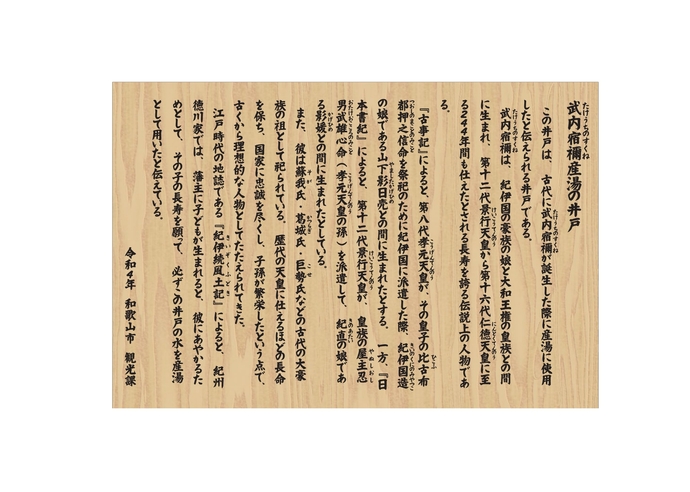 武内宿禰産湯の井戸
この井戸は、古代に武内宿禰が誕生した際に産湯に使用
したと伝えられる井戸である。
武内宿禰は、紀伊国の豪族の娘と大和王権の皇族との間
に生まれ、第十二代景行天皇から第十六代仁徳天皇に至
る244年間も仕えたとされる長寿を誇る伝説上の人物であ
る。
『古事記』によると、第八代孝元天皇が、その皇子の比古布
都押之信命を祭祀のために紀伊国に派遣した際、紀伊国造
の娘である山下影日売との間に生まれたとする。一方、『日
本書紀』によると、第十二代景行天皇が、皇族の屋主忍
男武雄心命(孝元天皇の孫)を派遣して、紀直の娘であ
る影媛との間に生まれたとしている。
また、彼は蘇我氏・葛城氏・巨勢氏などの古代の大豪
族の祖として祀られている。歴代の天皇に仕えるほどの長命
を保ち、国家に忠誠を尽くし、子孫が繁栄したという点で、
古くから理想的な人物としてたたえられてきた。
江戸時代の地誌である『紀伊続風土記』によると、紀州
徳川家では、藩主に子どもが生まれると、彼にあやかるた
めとして、その子の長寿を願って、必ずこの井戸の水を産湯
として用いたと伝えている。
令和4年 和歌山市 観光課